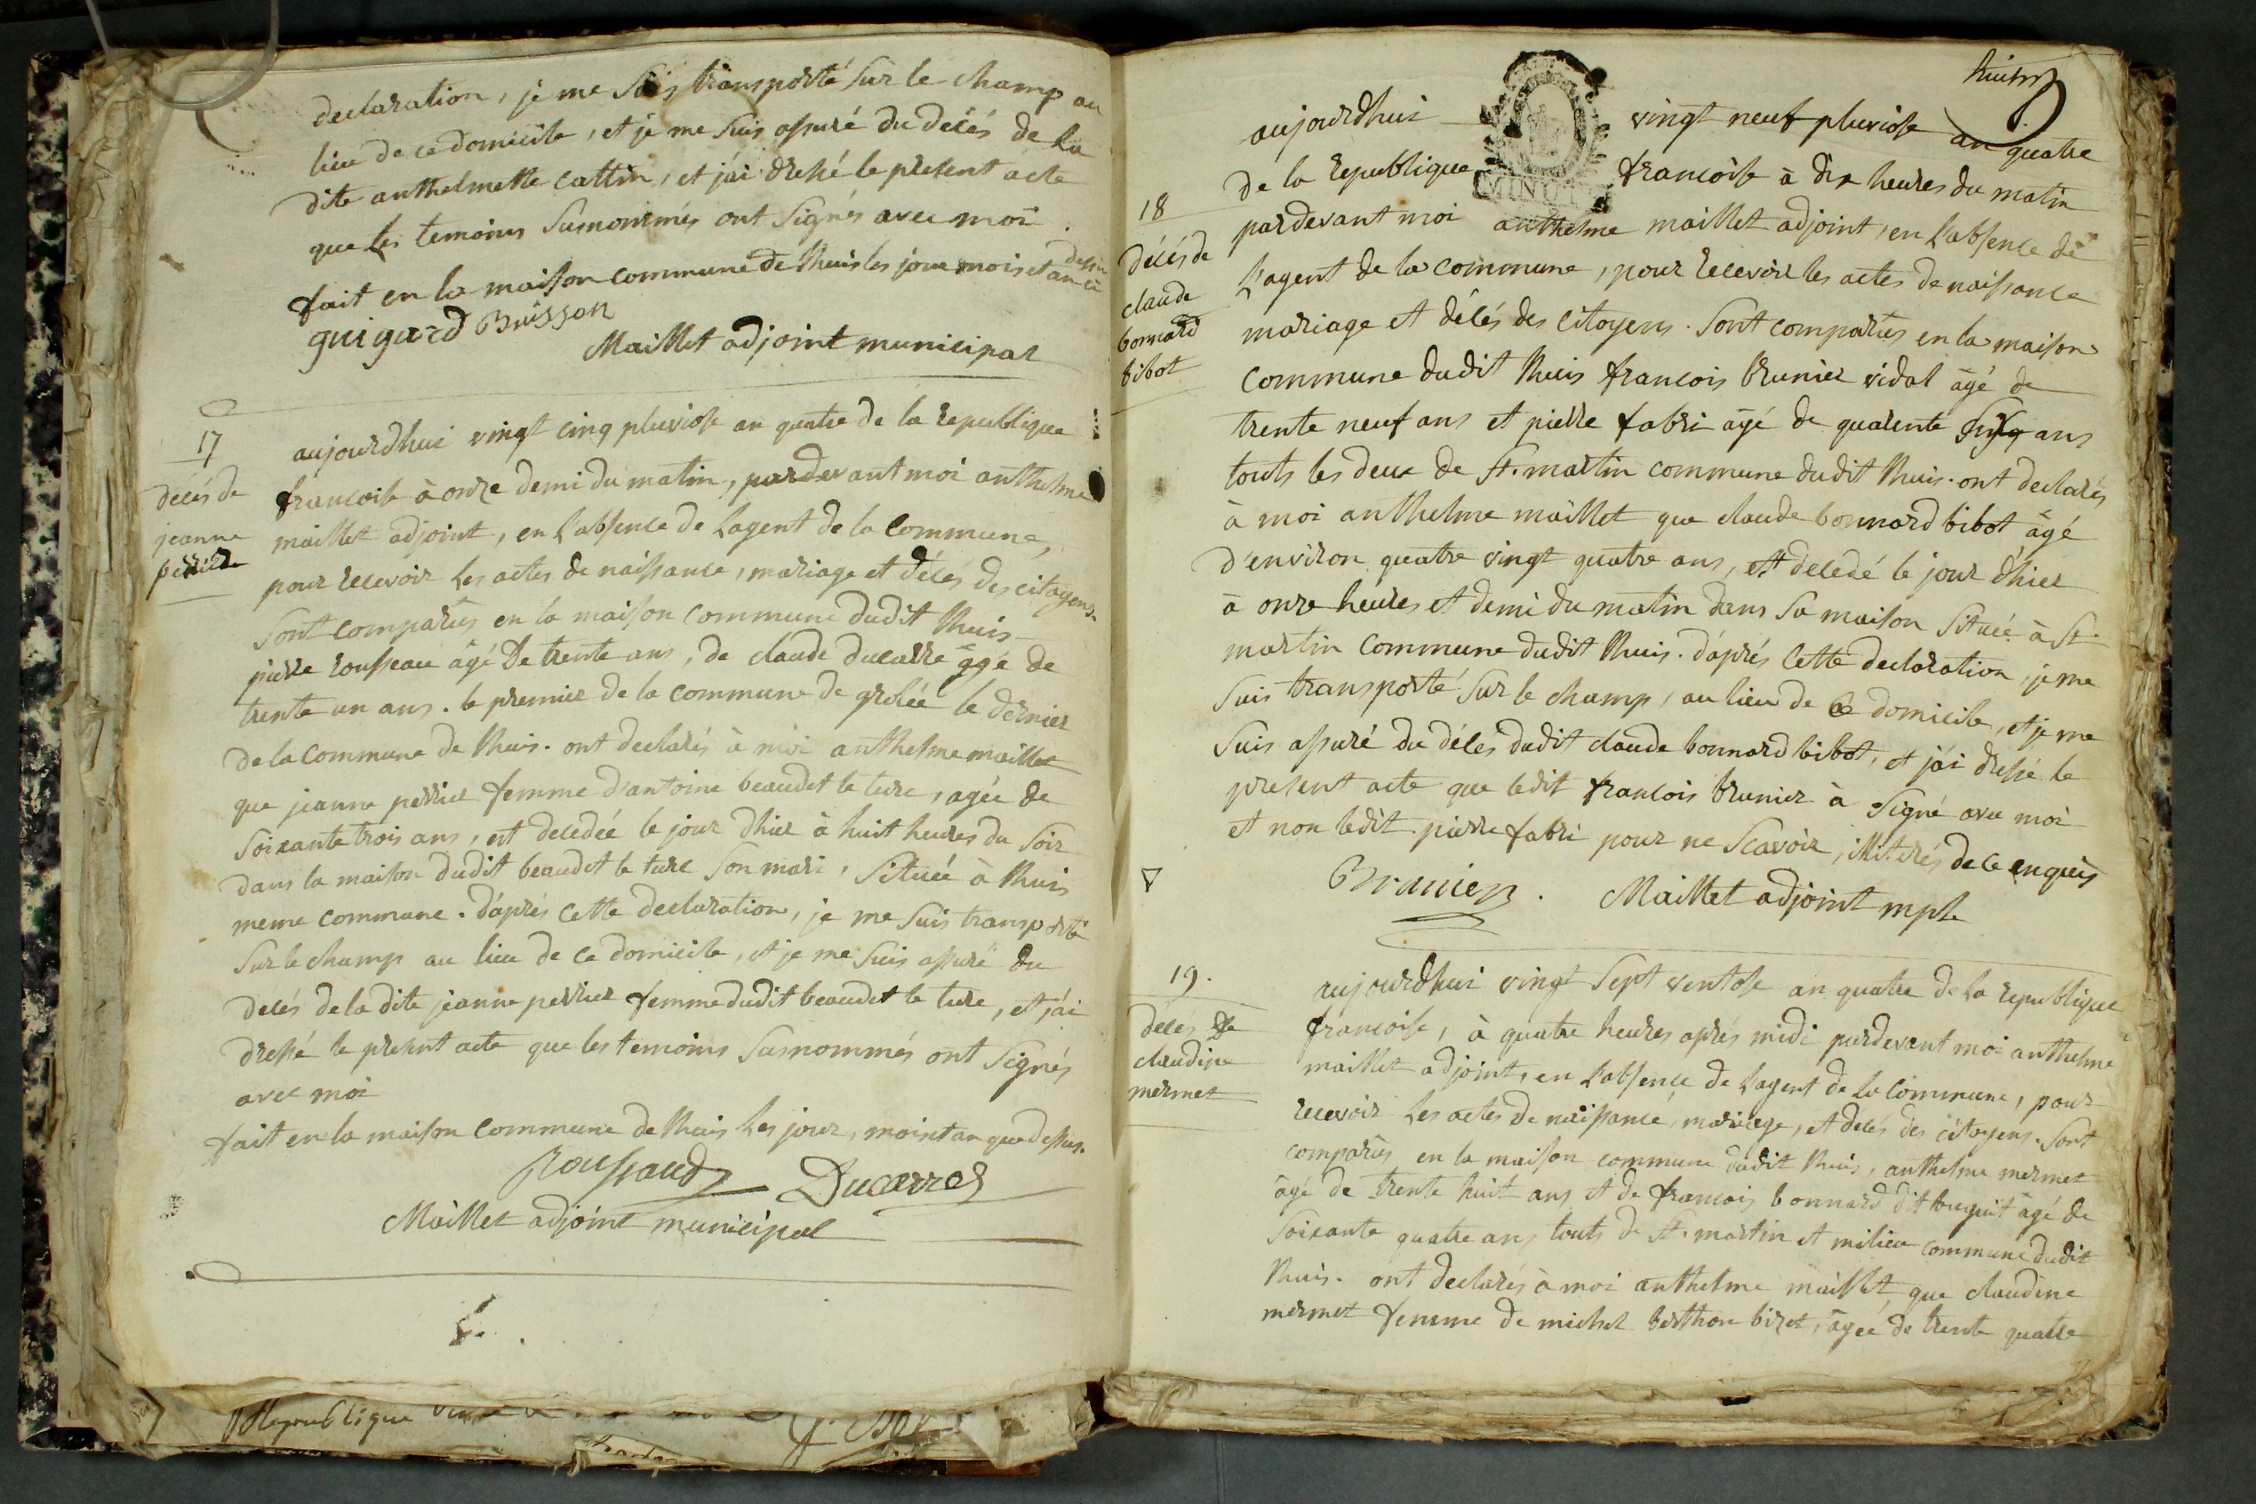 declaration, je me suis transporté sur le champ au
lieu de ce domicile, et je me suis assuré du décés de la
dite anthelmette cattin, et j'ai dressé le present acte
que les temoins susnommés ont signés avec moi
fait en la maison commune de Lhuis les jour mois et an ci
dessus
guigard Buisson
Maillet adjoint municipal
17
décés de
jeanne
perrier
aujourdhui vingt cinq pluviose an quatre de la republique
francoise à onze demi du matin, pardevant moi anthelme
maillet adjoint, en l'absence de lagent de la Commune,
pour recevoir les actes de naissance, mariage et décés des citoyens
sont comparus en la maison commune dudit Lhuis
pierre rousseau âgé de trente ans, de claude ducarre âgé de
trente un ans. le premier de la commune de grolée le dernier
de la commune de Lhuis. ont declarés à moi anthelme maillet
que jeanne perrier femme d'antoine beaudet le turc, agée de
soixante trois ans, est decedée le jour dhier à huit heures du soir
dans la maison dudit beaudet le turc son mari, située à Lhuis
meme commune. d'aprés cette declaration, je me suis transporté
sur le champ au lieu de ce domicile, et je me suis assuré du
décés de la dite jeanne perrier femme dudit beaudet le turc, et j'ai
dressé le present acte que les temoins susnommés ont signés
avec moi
fait en la maison commune de Lhuis les jour, mois et an que dessus.
Roussaud Ducarre
Maillet adjoint municipal
Republique
huit
MINUTE
18
décés de
claude
bonnard
bibot
aujourdhui vingt neuf pluviose an quatre
de la republique francoise à dix heures du matin
pardevant moi anthelme maillet adjoint, en l'absence de
l'agent de la commune, pour recevoir les actes de naissance
mariage et décés des citoyens. sont comparus en la maison
commune dudit Lhuis francois brunier vidal âgé de
trente neuf ans et pierre fabri âgé de quarente ans
touts les deux de St. martin commune dudit Lhuis. ont declarés
à moi anthelme maillet que claude bonnard bibot âgé
d'environ quatre vingt quatre ans, est decedé le jour d'hier
à onze heures et demi du matin dans sa maison située à St.
martin commune dudit Lhuis. d'aprés cette declaration, je me
suis transporté sur le champ, au lieu de ce domicile, et je me
suis assuré du décés dudit claude bonnard bibot, et j'ai dressé le
present acte que ledit francois brunier à signé avec moi
et non ledit pierre fabri pour ne scavoir, illiterés de ce enquis
Brunier. Maillet adjoint mpl
19.
décés de
claudine
mermet
aujourdhui vingt sept ventose an quatre de la republique
francoise, à quatre heures aprés midi pardevant moi anthelme
maillet adjoint, en l'absence de lagent de la commune, pour
recevoir les actes de naissance, mariage, et décés des citoyens. sont
comparus en la maison commune dudit Lhuis, anthelme mermet
âgé de trente huit ans et de francois bonnard dit âgé de
soixante quatre ans touts de St. martin et milieu commune dudit
Lhuis. ont declarés à moi anthelme maillet que claudine
mermet femme de michel berthon bizet, âgée de trente quatre